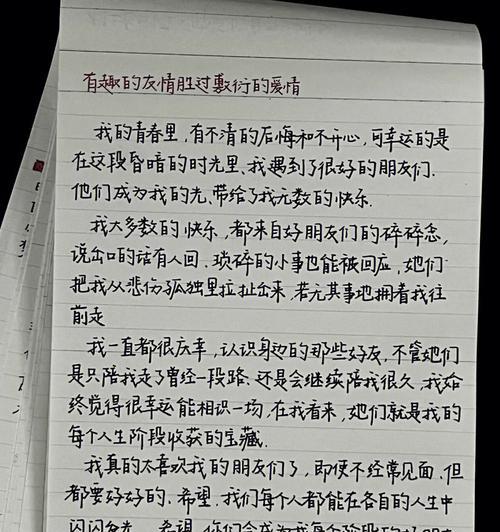 有趣的友情胜过敷衍的爱情
我的青春里，有不清的后悔和不开心，可幸运的是
在这段昏暗的时光里，我遇到了很好的朋友们.
他们成为我的光，带给了我无数的快乐.
我大多数的快乐，都来自好朋友们的碎碎念，
说出口的话有人回、琐碎的小事也能被回应，她们
把我从悲伤孤独里拉扯出来，若无其事地拥着我往
前走
我一直都很庆幸，认识身边的那些好友，不管她们
是只陪我走了曾经一段路、还是会继续陪我很久，我始
终觉得很幸运能相识一场，在我看来，她们就是我的
每个人生阶段收获的宝藏.
我真的太喜欢我的朋友们了，即使不经常见面，但
都要好好的、希望，我们每个人都能在各自的人生中
闪闪发光，希望，你们会成为我每个阶段的